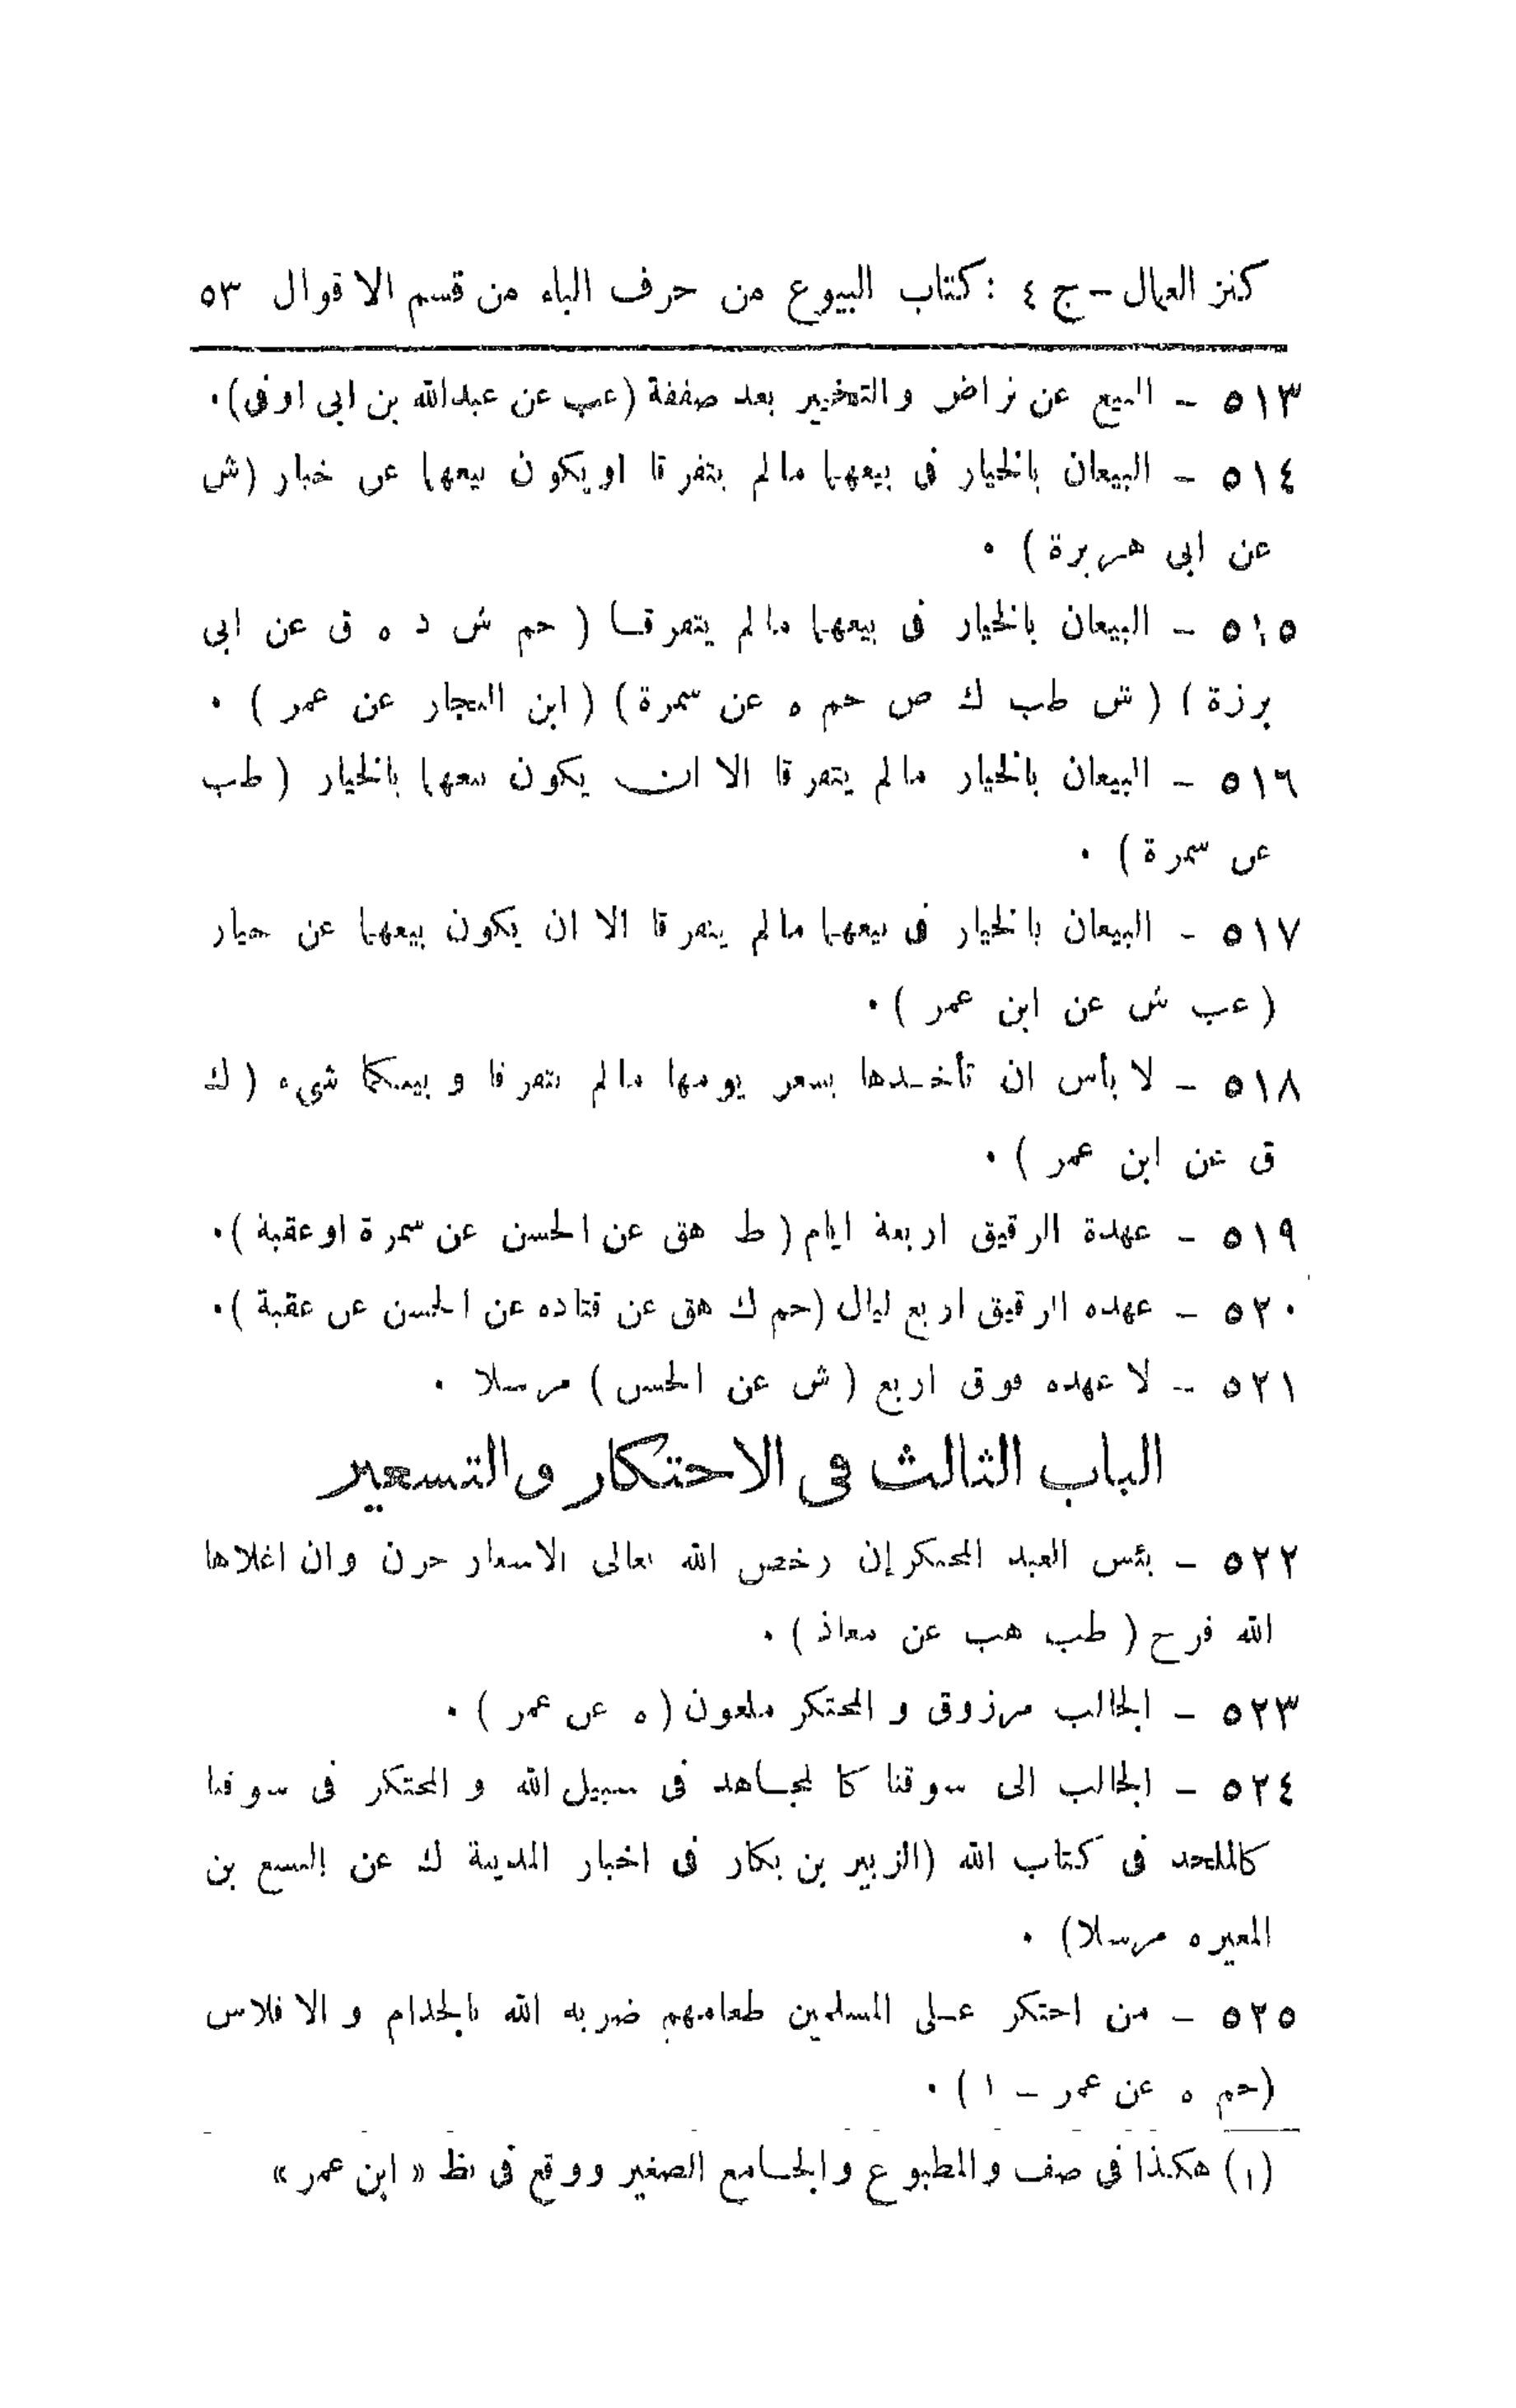 كنز العمال - ج ٤ : كتاب البيوع من حرف الباء من قسم الاقوال ٥٣
٥١٣ - البيع عن تراض والتخيير بعد صفقة (عب عن عبدالله بن ابى اوفى).
٥١٤ - البيعان بالخيار فى بيعهما مالم يتفرقا او يكون بيعهما عن خيار (ش
عن ابى هريرة).
٥١٥ - البيعان بالخيار فى بيعهما مالم يتفرقا (حم ش د ه ق عن ابى
برزة) (ش طب ك ص حم ه عن سمرة) (ابن النجار عن عمر).
٥١٦ - البيعان بالخيار مالم يتفرقا الا ان يكون بيعهما بالخيار (طب
عن سمرة).
٥١٧ - البيعان بالخيار فى بيعهما مالم يتفرقا الا ان يكون بيعهما عن خيار
(عب ش عن ابن عمر).
٥١٨ - لا بأس ان تأخذها بسعر يومها مالم تتفرقا و بينكما شىء (ك
ق عن ابن عمر).
٥١٩ - عهدة الرقيق اربعة ايام (ط هق عن الحسن عن سمرة او عقبة).
٥٢٠ - عهدة الرقيق اربع ليال (حم ك هق عن قتادة عن الحسن عن عقبة).
٥٢١ - لا عهدة فوق اربع (ش عن الحسن) مرسلا.
الباب الثالث فى الاحتكار والتسعير
٥٢٢ - بئس العبد المحتكر إن رخص الله تعالى الاسعار حزن وان اغلاها
الله فرح (طب هب عن معاذ).
٥٢٣ - الجالب مرزوق و المحتكر ملعون (ه عن عمر).
٥٢٤ - الجالب الى سوقنا كالمجاهد فى سبيل الله و المحتكر فى سوقنا
كالملحد فى كتاب الله (الزبير بن بكار فى اخبار المدينة ك عن اليسع بن
المغيرة مرسلا).
٥٢٥ - من احتكر على المسلمين طعامهم ضربه الله بالجذام و الافلاس
(حم ه عن عمر - ١).
(١) هكذا فى صف والمطبوع والجامع الصغير ووقع فى نظ «ابن عمر»